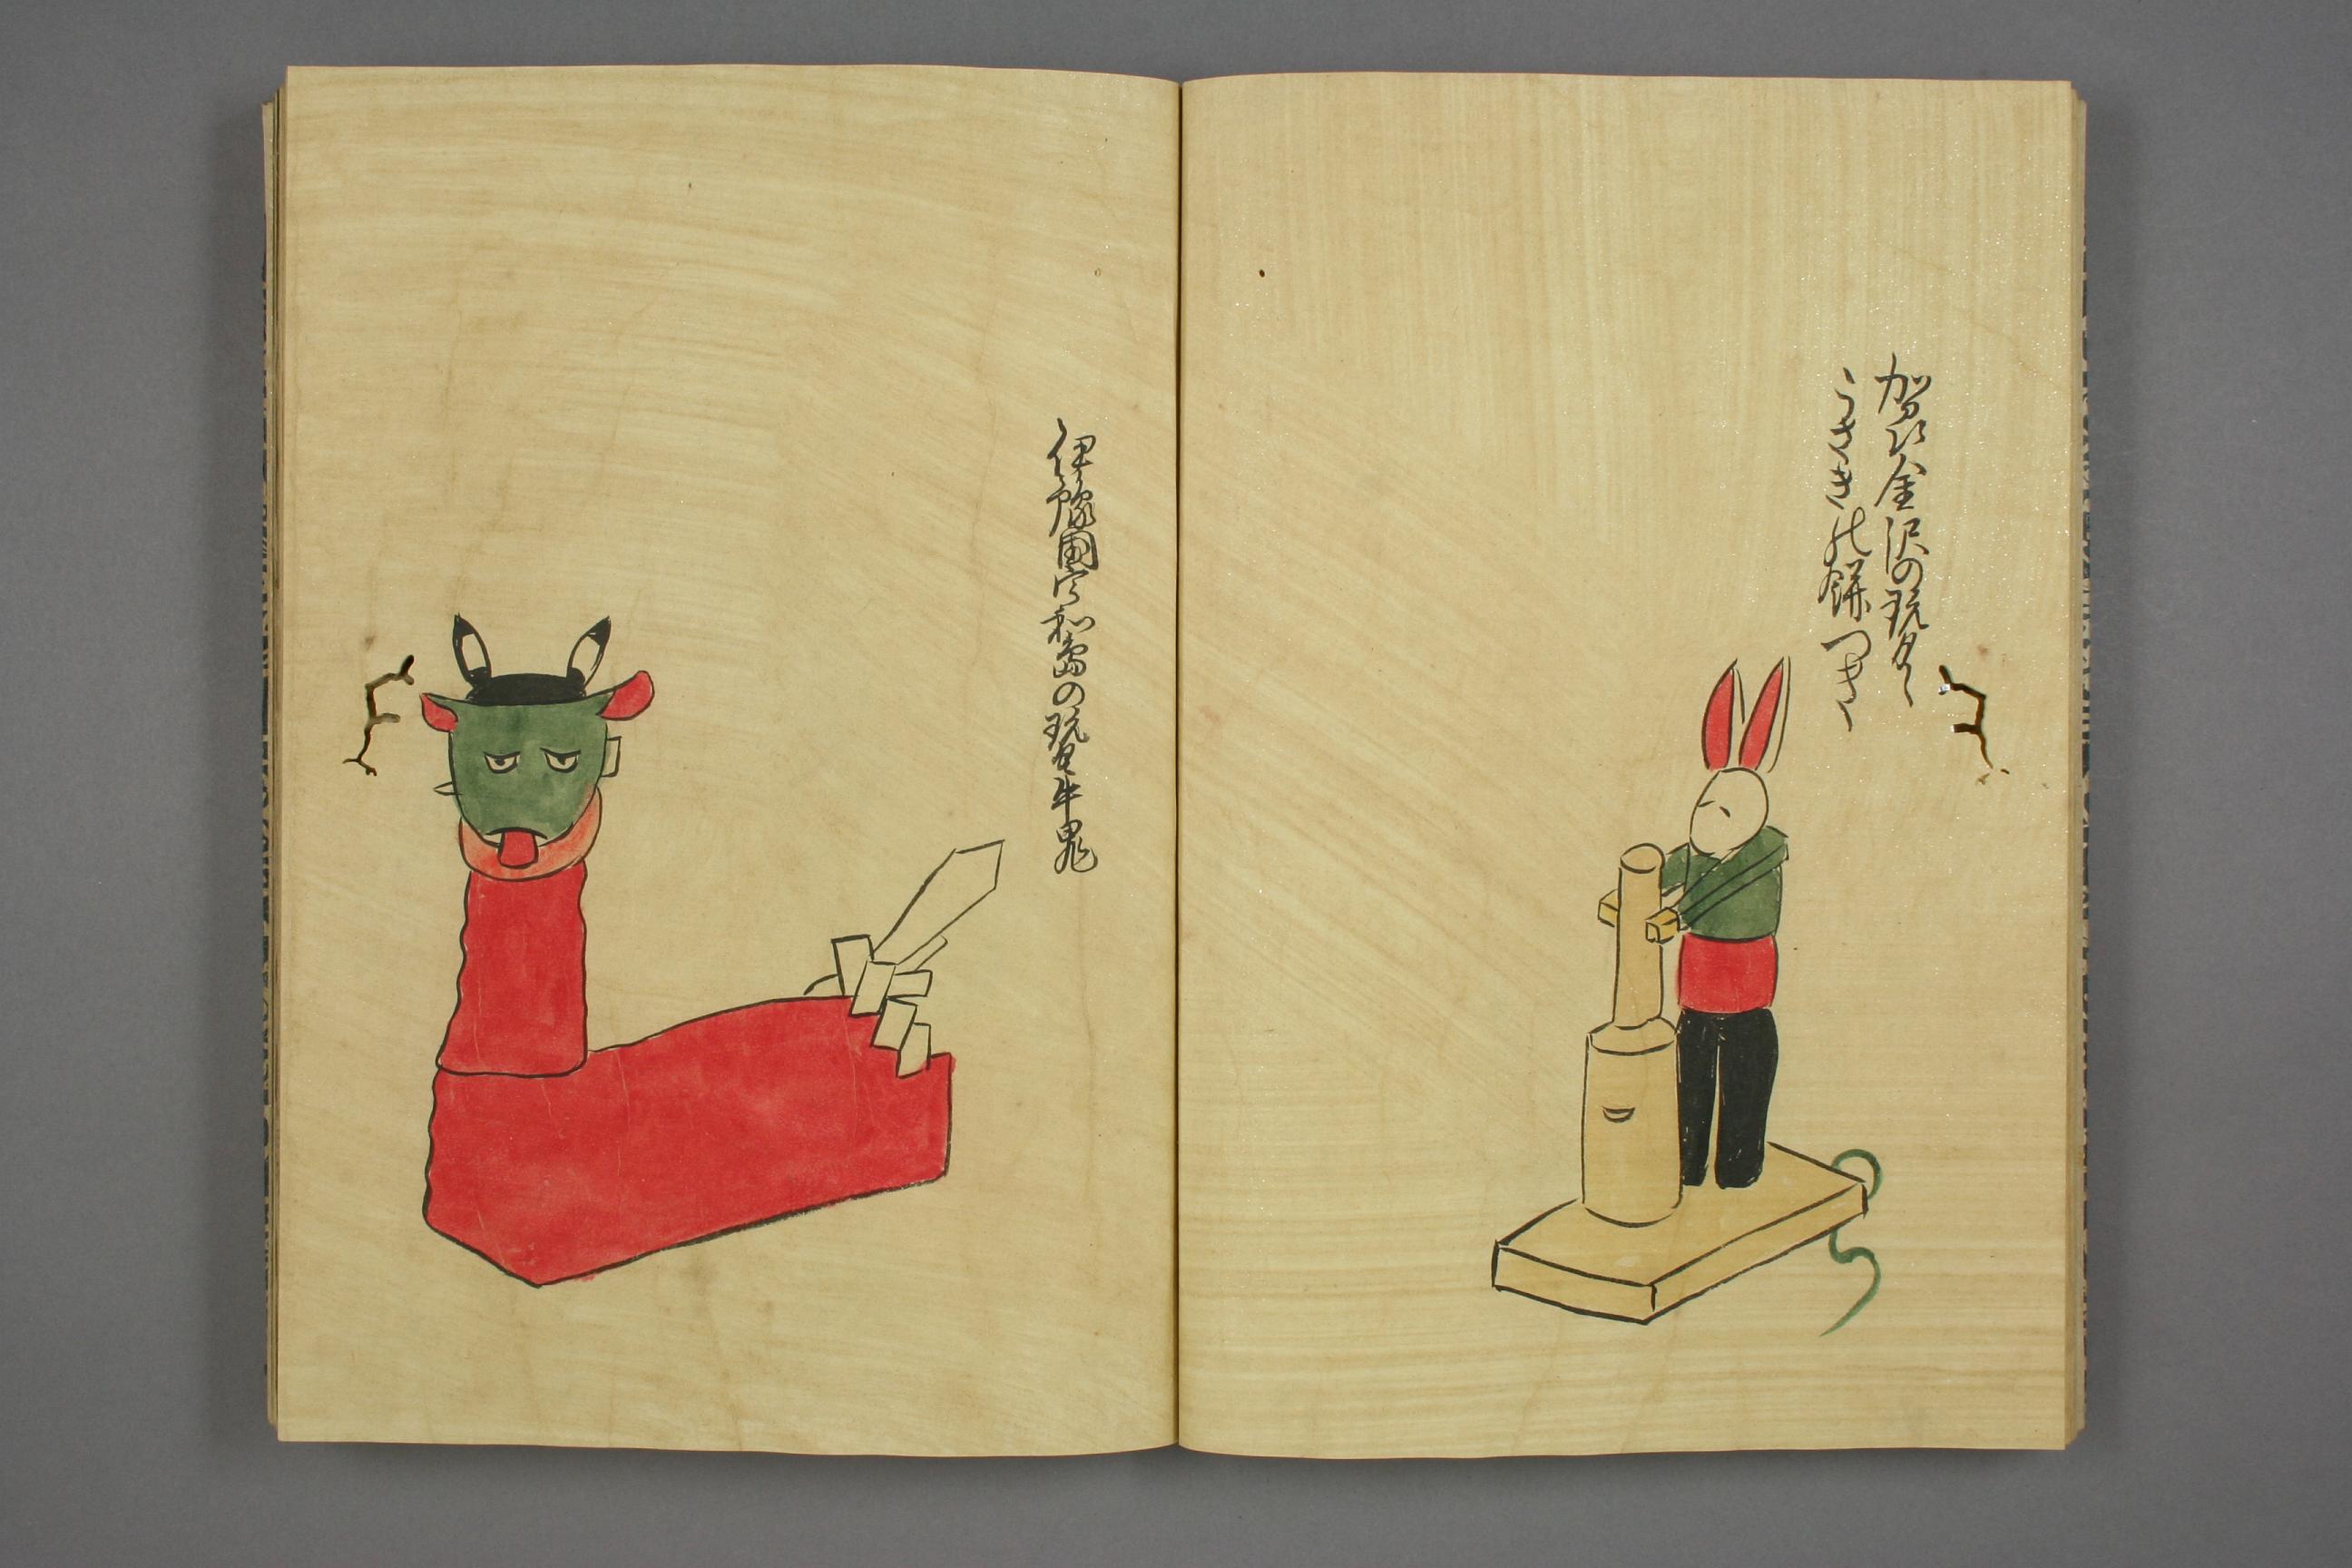 加賀金沢の玩具
うさきの餅つき
伊豫国宇和島の玩具牛鬼